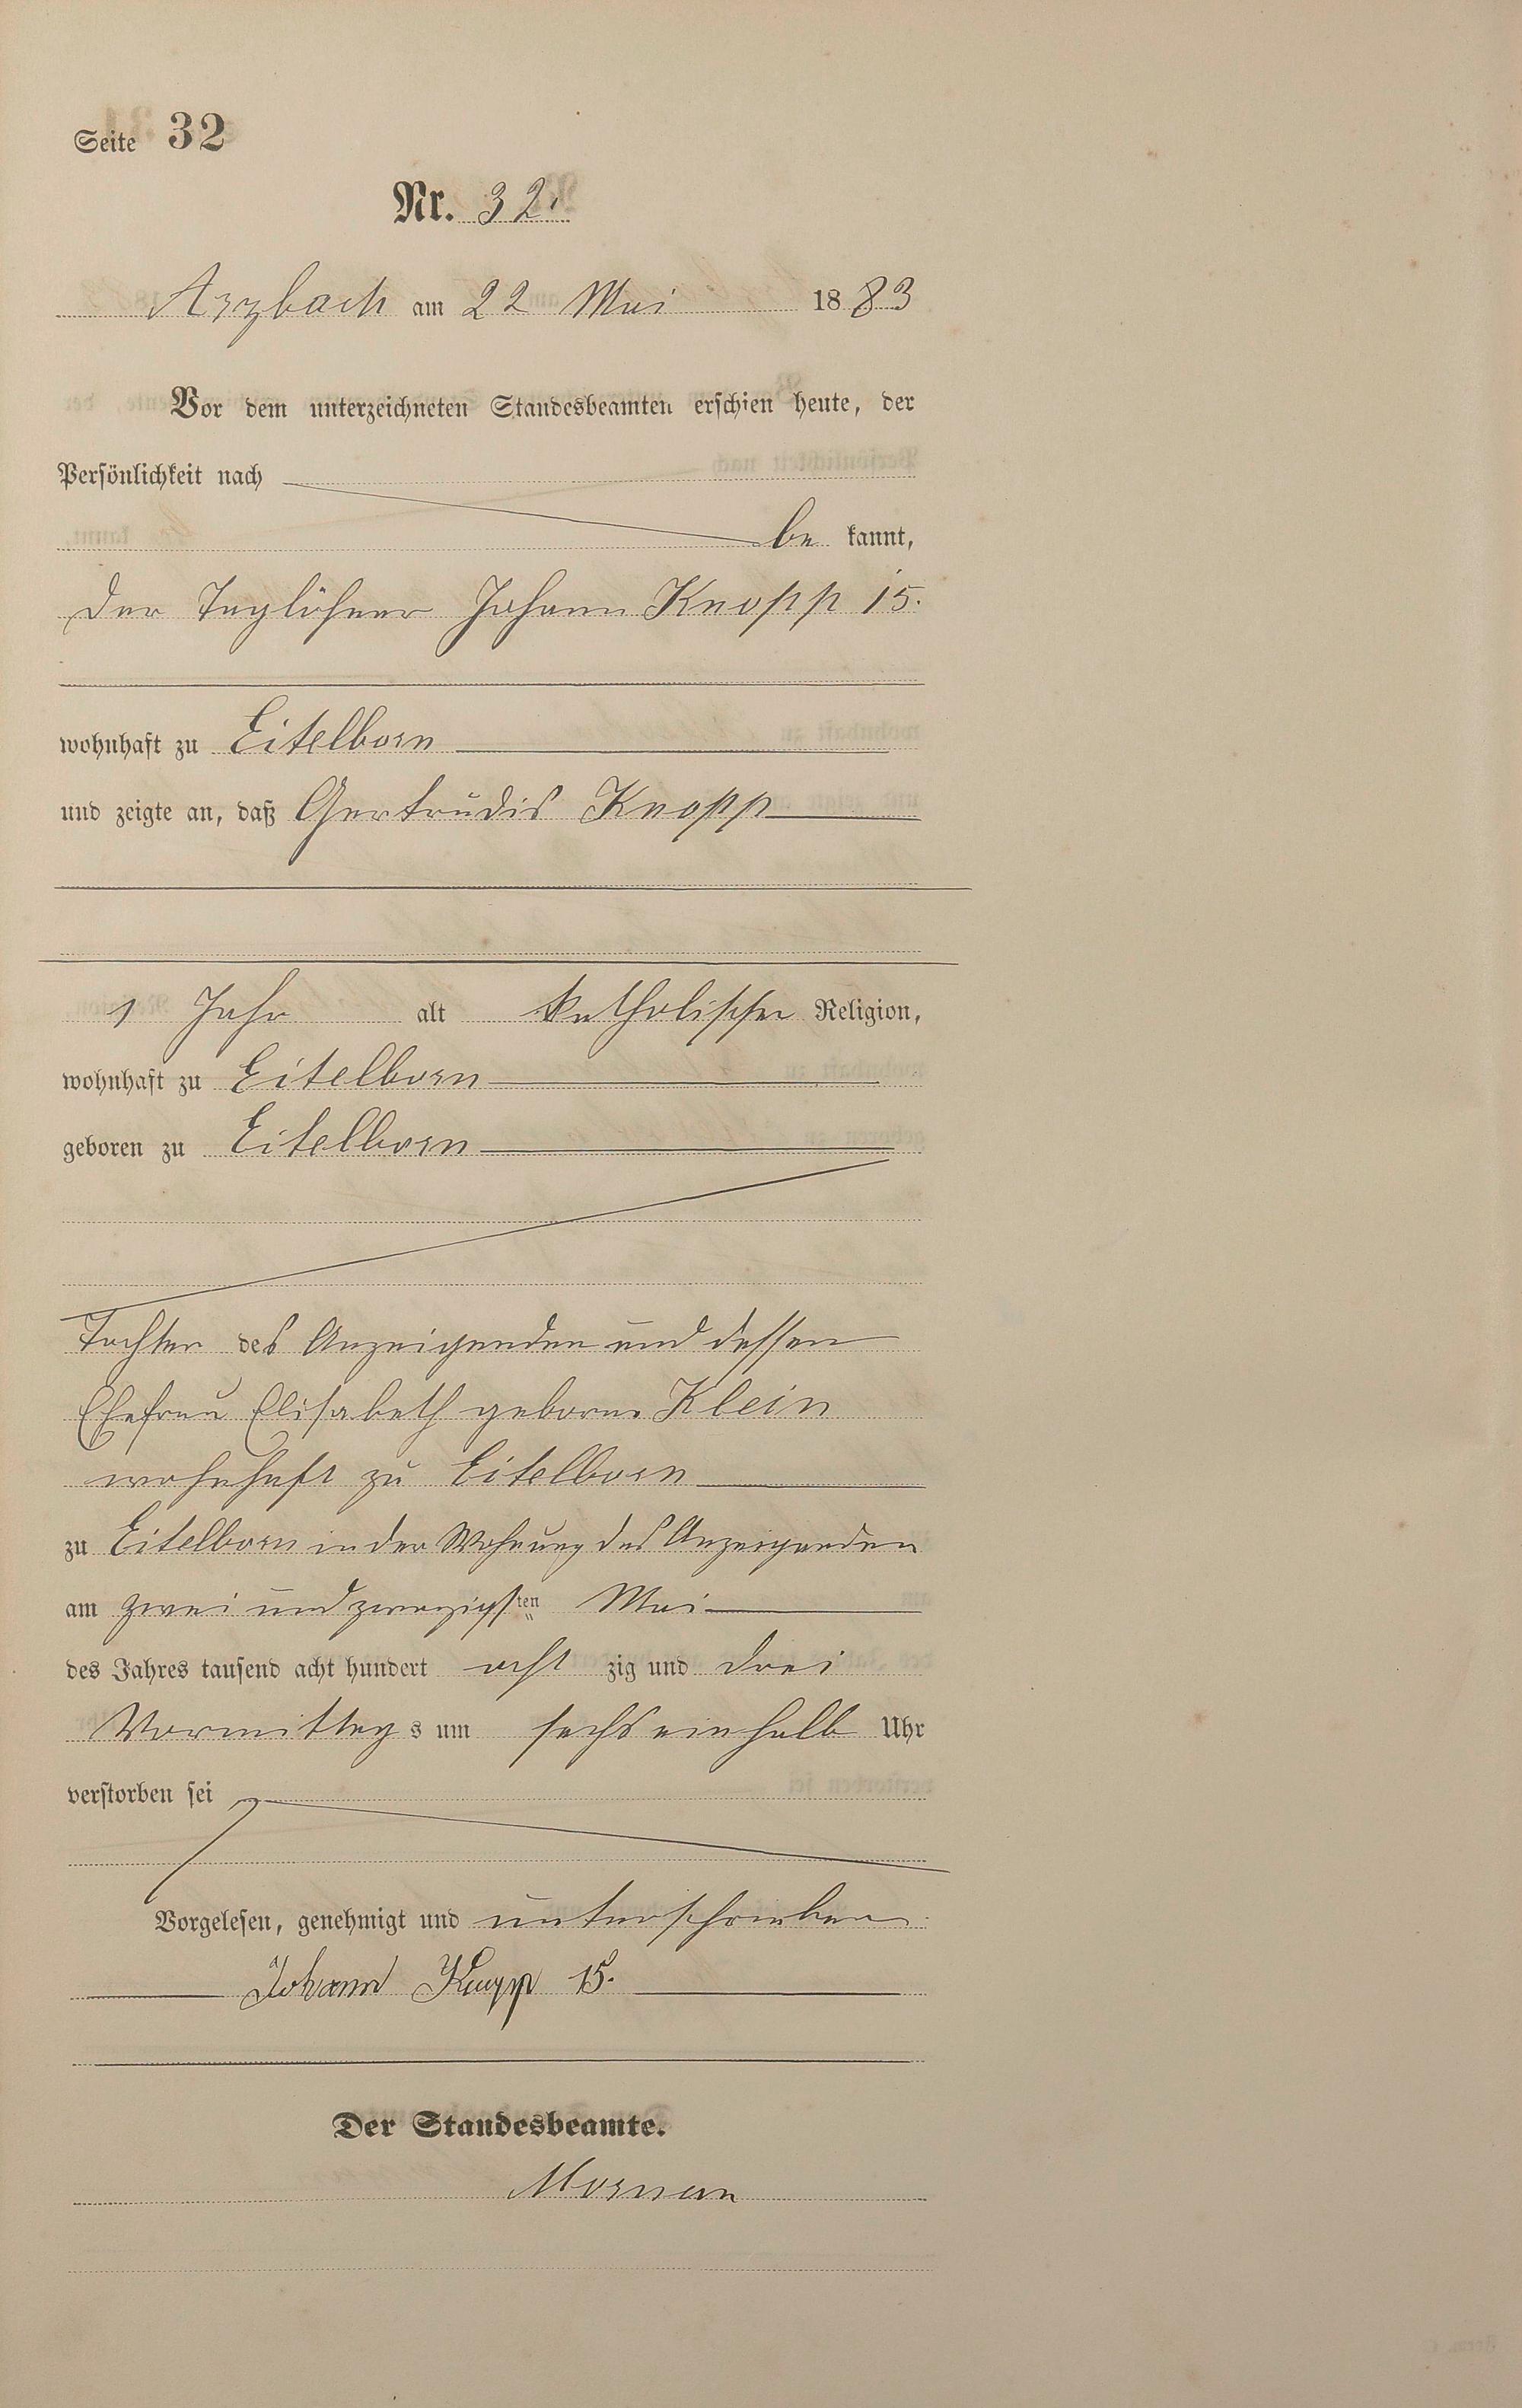 Seite 32
Nr. 32.
Arzbach am 22 Mai 1883
Vor dem unterzeichneten Standesbeamten erschien heute, der
Persönlichkeit nach
be kannt,
der Taglöhner Johann Knopp 15.
wohnhaft zu Eitelborn
und zeigte an, daß Gertrudis Knopp
1 Jahr alt katholischer Religion,
wohnhaft zu Eitelborn
geboren zu Eitelborn
Tochter des Anzeigenden und dessen
Ehefrau Elisabeth geborne Klein
wohnhaft zu Eitelborn
zu Eitelborn in der Wohnung des Anzeigenden
am zwei und zwanzigsten Mai
des Jahres tausend acht hundert acht zig und drei
Vormittags um sechs einhalb Uhr
verstorben sei
Vorgelesen, genehmigt und unterschrieben
Johann Knopp 15.
Der Standesbeamte.